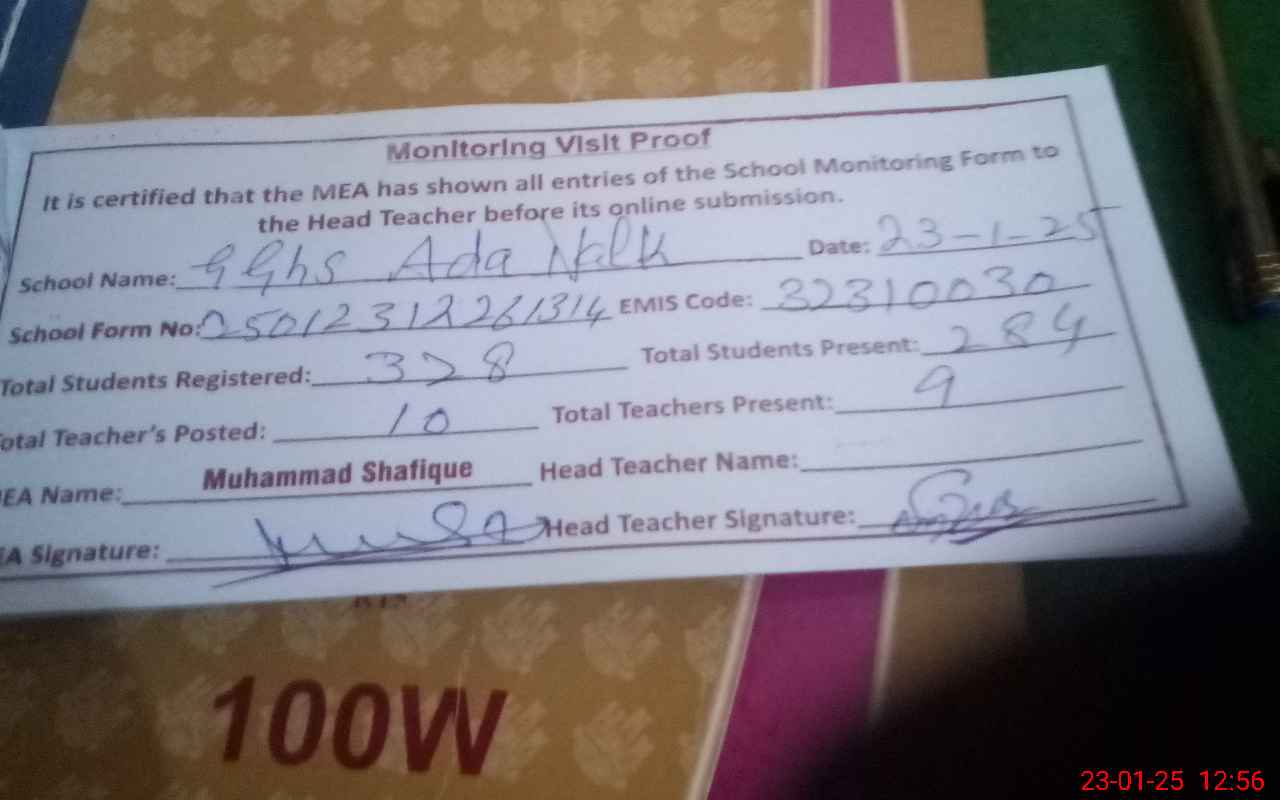 Monitoring Visit Proof
It is certified that the MEA has shown all entries of the School Monitoring Form to
the Head Teacher before its online submission.
School Name: GGhs Ada Date: 23-1-25
School Form No: 250123122261314 EMIS Code: 32310030
Total Students Registered: 328 Total Students Present: 284
otal Teacher's Posted: 10 Total Teachers Present: 9
EA Name: Muhammad Shafique Head Teacher Name:
A Signature: Head Teacher Signature:
100W
23-01-25 12:56